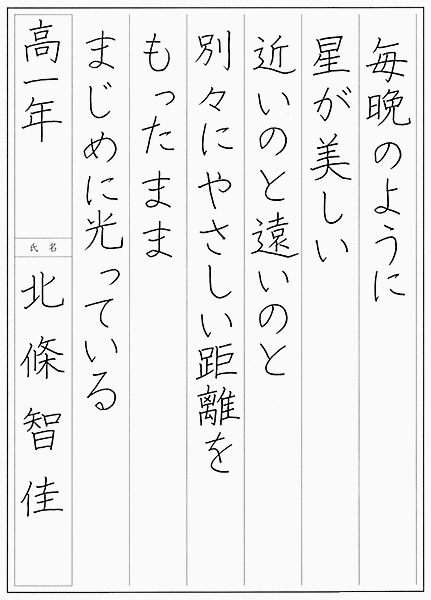 毎晩のように
星が美しい
近いのと遠いのと
別々にやさしい距離を
もったまま
まじめに光っている
高一年
氏名
北條智佳